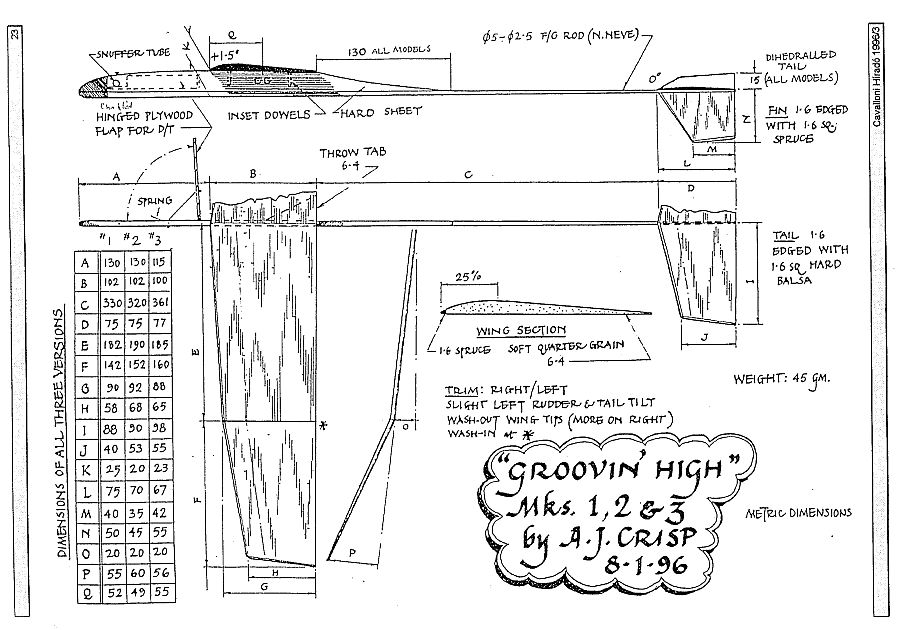 23
Cavalloni Híradó 1996/3
SNUFFER TUBE
Q
+1·5°
K
130 ALL MODELS
Ø5–Ø2·5 F/G ROD (N.NEVE)
0°
DIHEDRALLED
TAIL
15 (ALL MODELS)
HINGED PLYWOOD
FLAP FOR D/T
INSET DOWELS
HARD SHEET
N
M
L
FIN 1·6 EDGED
WITH 1·6 SQ.
SPRUCE
THROW TAB
6·4
A
B
C
D
SPRING
#1 #2 #3
A 130 130 115
B 102 102 100
C 330 320 361
D 75 75 77
E 182 190 185
F 142 152 160
G 90 92 88
H 58 68 65
I 88 90 98
J 40 53 55
K 25 20 23
L 75 70 67
M 40 35 42
N 50 45 55
O 20 20 20
P 55 60 56
Q 52 49 55
DIMENSIONS OF ALL THREE VERSIONS
E
F
H
G
*
O
P
TAIL 1·6
EDGED WITH
1·6 SQ HARD
BALSA
I
J
25%
WING SECTION
1·6 SPRUCE SOFT QUARTER GRAIN
6·4
WEIGHT: 45 GM.
TRIM: RIGHT/LEFT
SLIGHT LEFT RUDDER & TAIL TILT
WASH-OUT WING TIPS (MORE ON RIGHT)
WASH-IN at *
"GROOVIN' HIGH"
Mks. 1, 2 & 3
by A.J. CRISP
8·1·96
METRIC DIMENSIONS